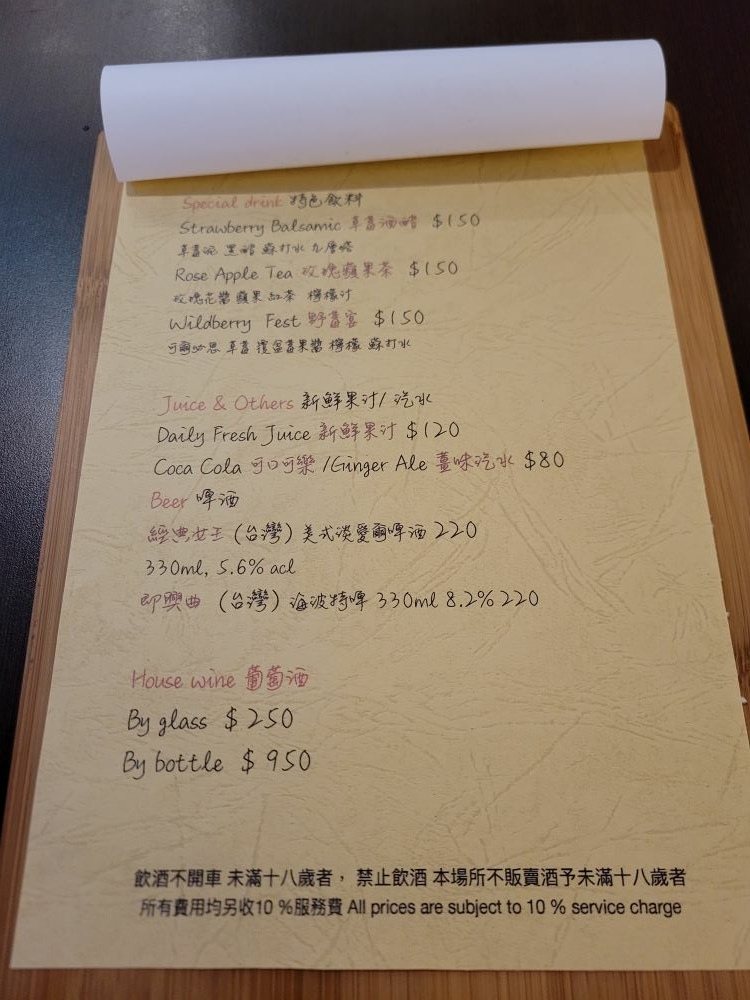 Special drink 特色飲料
Strawberry Balsamic 草莓酒醋 $150
草莓泥 黑醋 蘇打水 九層塔
Rose Apple Tea 玫瑰蘋果茶 $150
玫瑰花醬 蘋果 紅茶 檸檬汁
Wildberry Fest 野莓宴 $150
可爾必思 草莓 覆盆莓果醬 檸檬 蘇打水
Juice & Others 新鮮果汁/ 汽水
Daily Fresh Juice 新鮮果汁 $120
Coca Cola 可口可樂 /Ginger Ale 薑味汽水 $80
Beer 啤酒
經典女王 (台灣) 美式淡愛爾啤酒 220
330ml, 5.6% acl
即興曲 (台灣) 海波特啤 330ml 8.2% 220
House wine 葡萄酒
By glass $ 250
By bottle $ 950
飲酒不開車 未滿十八歲者， 禁止飲酒 本場所不販賣酒予未滿十八歲者
所有費用均另收10 %服務費 All prices are subject to 10 % service charge